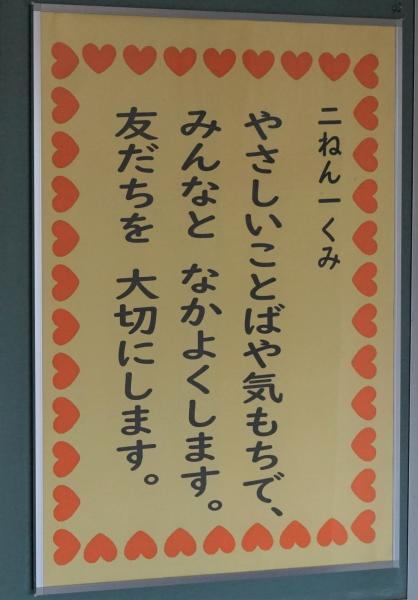 二ねん一くみ
やさしいことばや気もちで、
みんなと なかよくします。
友だちを 大切にします。